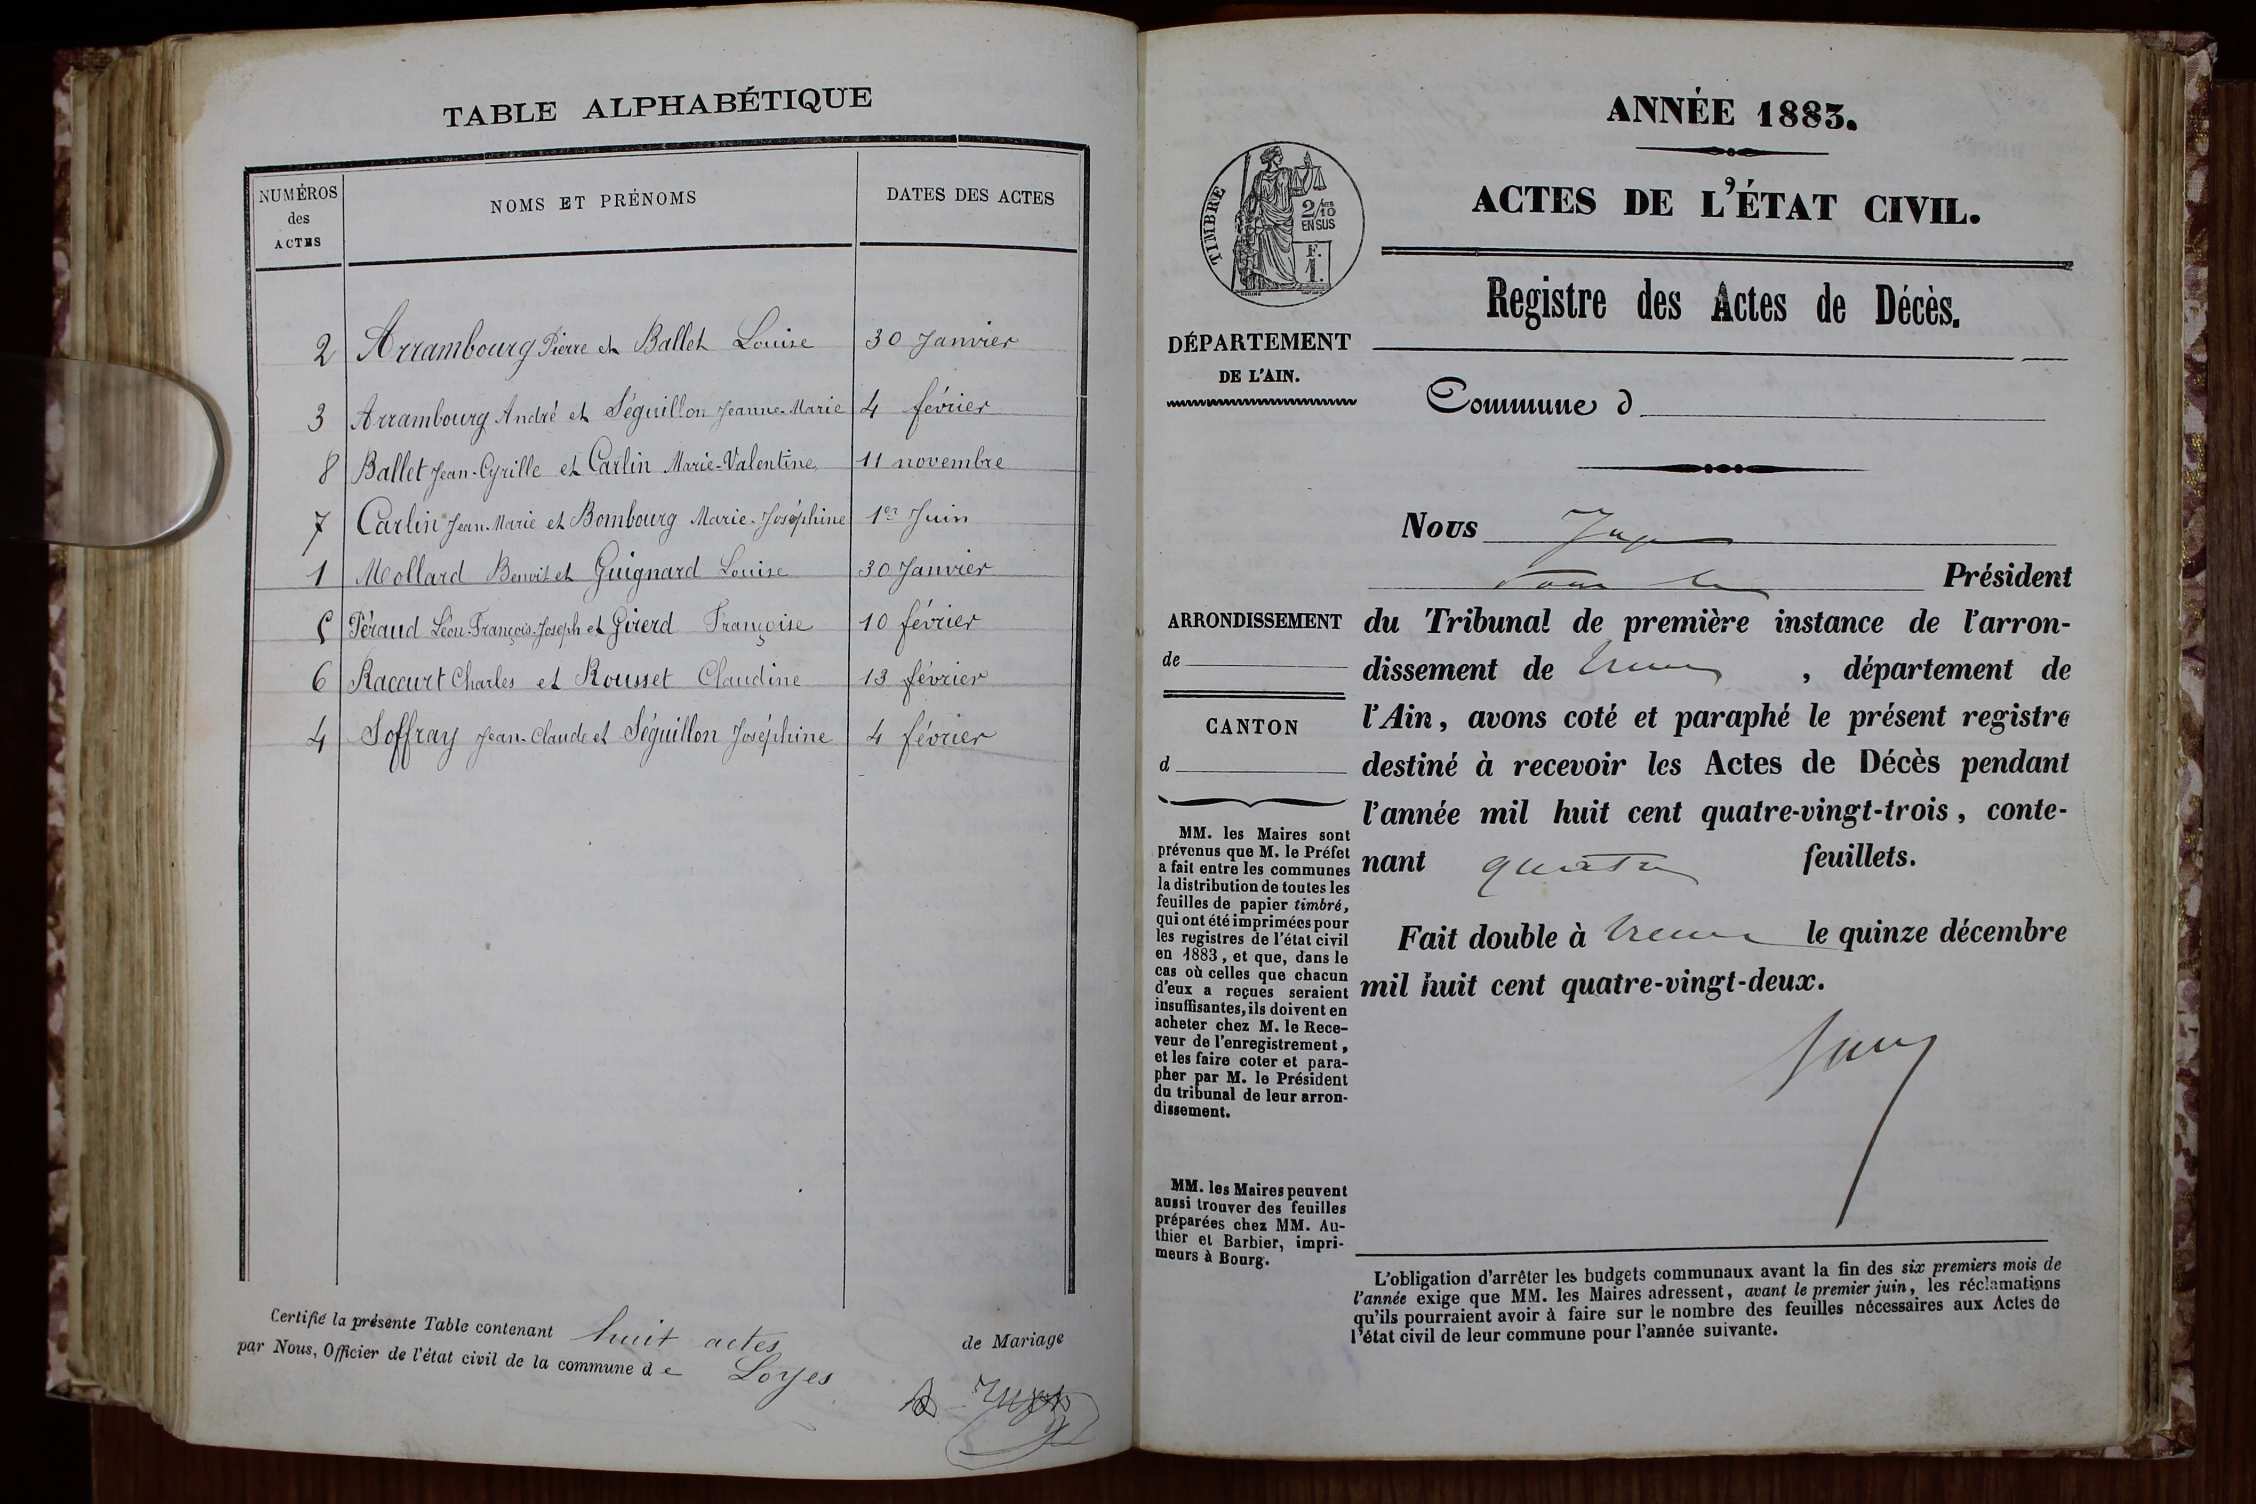 TABLE ALPHABÉTIQUE
NUMÉROS des ACTES
NOMS ET PRÉNOMS
DATES DES ACTES
2 Arrambourg Pierre et Ballet Louise 30 Janvier
3 Arrambourg André et Séguillon Jeanne-Marie 4 février
8 Ballet Jean-Cyrille et Carlin Marie-Valentine 11 novembre
7 Carlin Jean-Marie et Bombourg Marie-Joséphine 1er Juin
1 Mollard Benoit et Guignard Louise 30 Janvier
5 Péraud Léon-François-Joseph et Girerd Françoise 10 février
6 Raccurt Charles et Rousset Claudine 13 février
4 Soffray Jean-Claude et Séguillon Joséphine 4 février
Certifié la présente Table contenant huit actes de Mariage
par Nous, Officier de l'état civil de la commune de Loyes
ANNÉE 1883.
ACTES DE L'ÉTAT CIVIL.
TIMBRE
2/10
EN SUS
F.
1.
Registre des Actes de Décès.
DÉPARTEMENT
DE L'AIN.
Commune d
Nous Juge
Président
ARRONDISSEMENT
de
CANTON
d
du Tribunal de première instance de l'arron-
dissement de , département de
l'Ain, avons coté et paraphé le présent registre
destiné à recevoir les Actes de Décès pendant
l'année mil huit cent quatre-vingt-trois, conte-
nant quatre feuillets.
Fait double à le quinze décembre
mil huit cent quatre-vingt-deux.
MM. les Maires sont
prévenus que M. le Préfet
a fait entre les communes
la distribution de toutes les
feuilles de papier timbré,
qui ont été imprimées pour
les registres de l'état civil
en 1883, et que, dans le
cas où celles que chacun
d'eux a reçues seraient
insuffisantes, ils doivent en
acheter chez M. le Rece-
veur de l'enregistrement,
et les faire coter et para-
pher par M. le Président
du tribunal de leur arron-
dissement.
MM. les Maires peuvent
aussi trouver des feuilles
préparées chez MM. Au-
thier et Barbier, impri-
meurs à Bourg.
L'obligation d'arrêter les budgets communaux avant la fin des six premiers mois de
l'année exige que MM. les Maires adressent, avant le premier juin, les réclamations
qu'ils pourraient avoir à faire sur le nombre des feuilles nécessaires aux Actes de
l'état civil de leur commune pour l'année suivante.